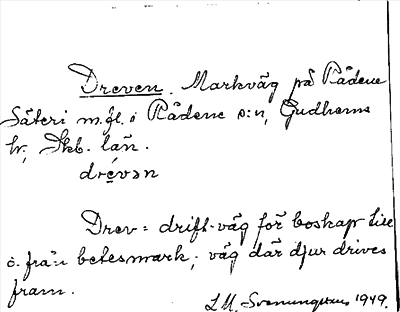 Dreven. Markväg på Rådene
Säteri m.fl. i Rådene s:n, Gudhems
hr, Skb. län.
drévən
Drev = drift-väg för boskap till
o. från betesmark; väg där djur drives
fram.
L.M. Svenungsson 1949.